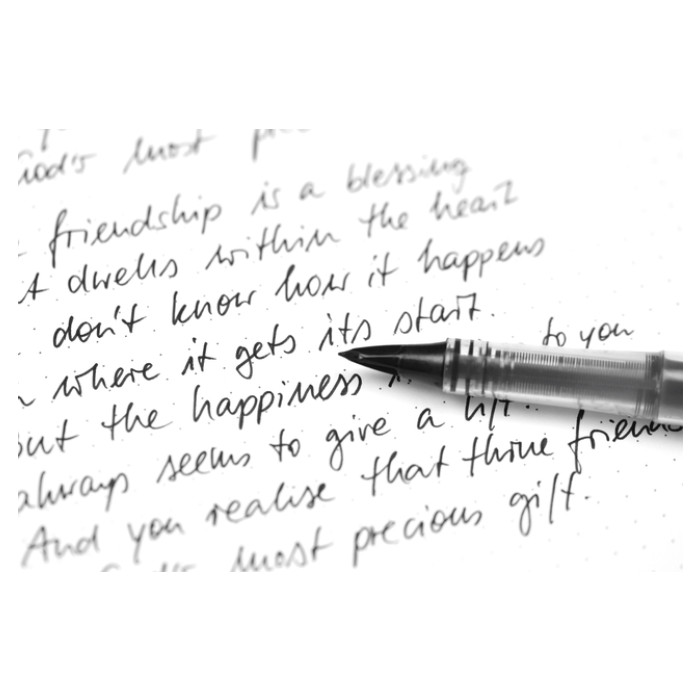 God's most
friendship is a blessing
it dwells within the heart
don't know how it happens
where it gets its start.
but the happiness to you
always seems to give a lift.
And you realise that thine
God's most precious gift.